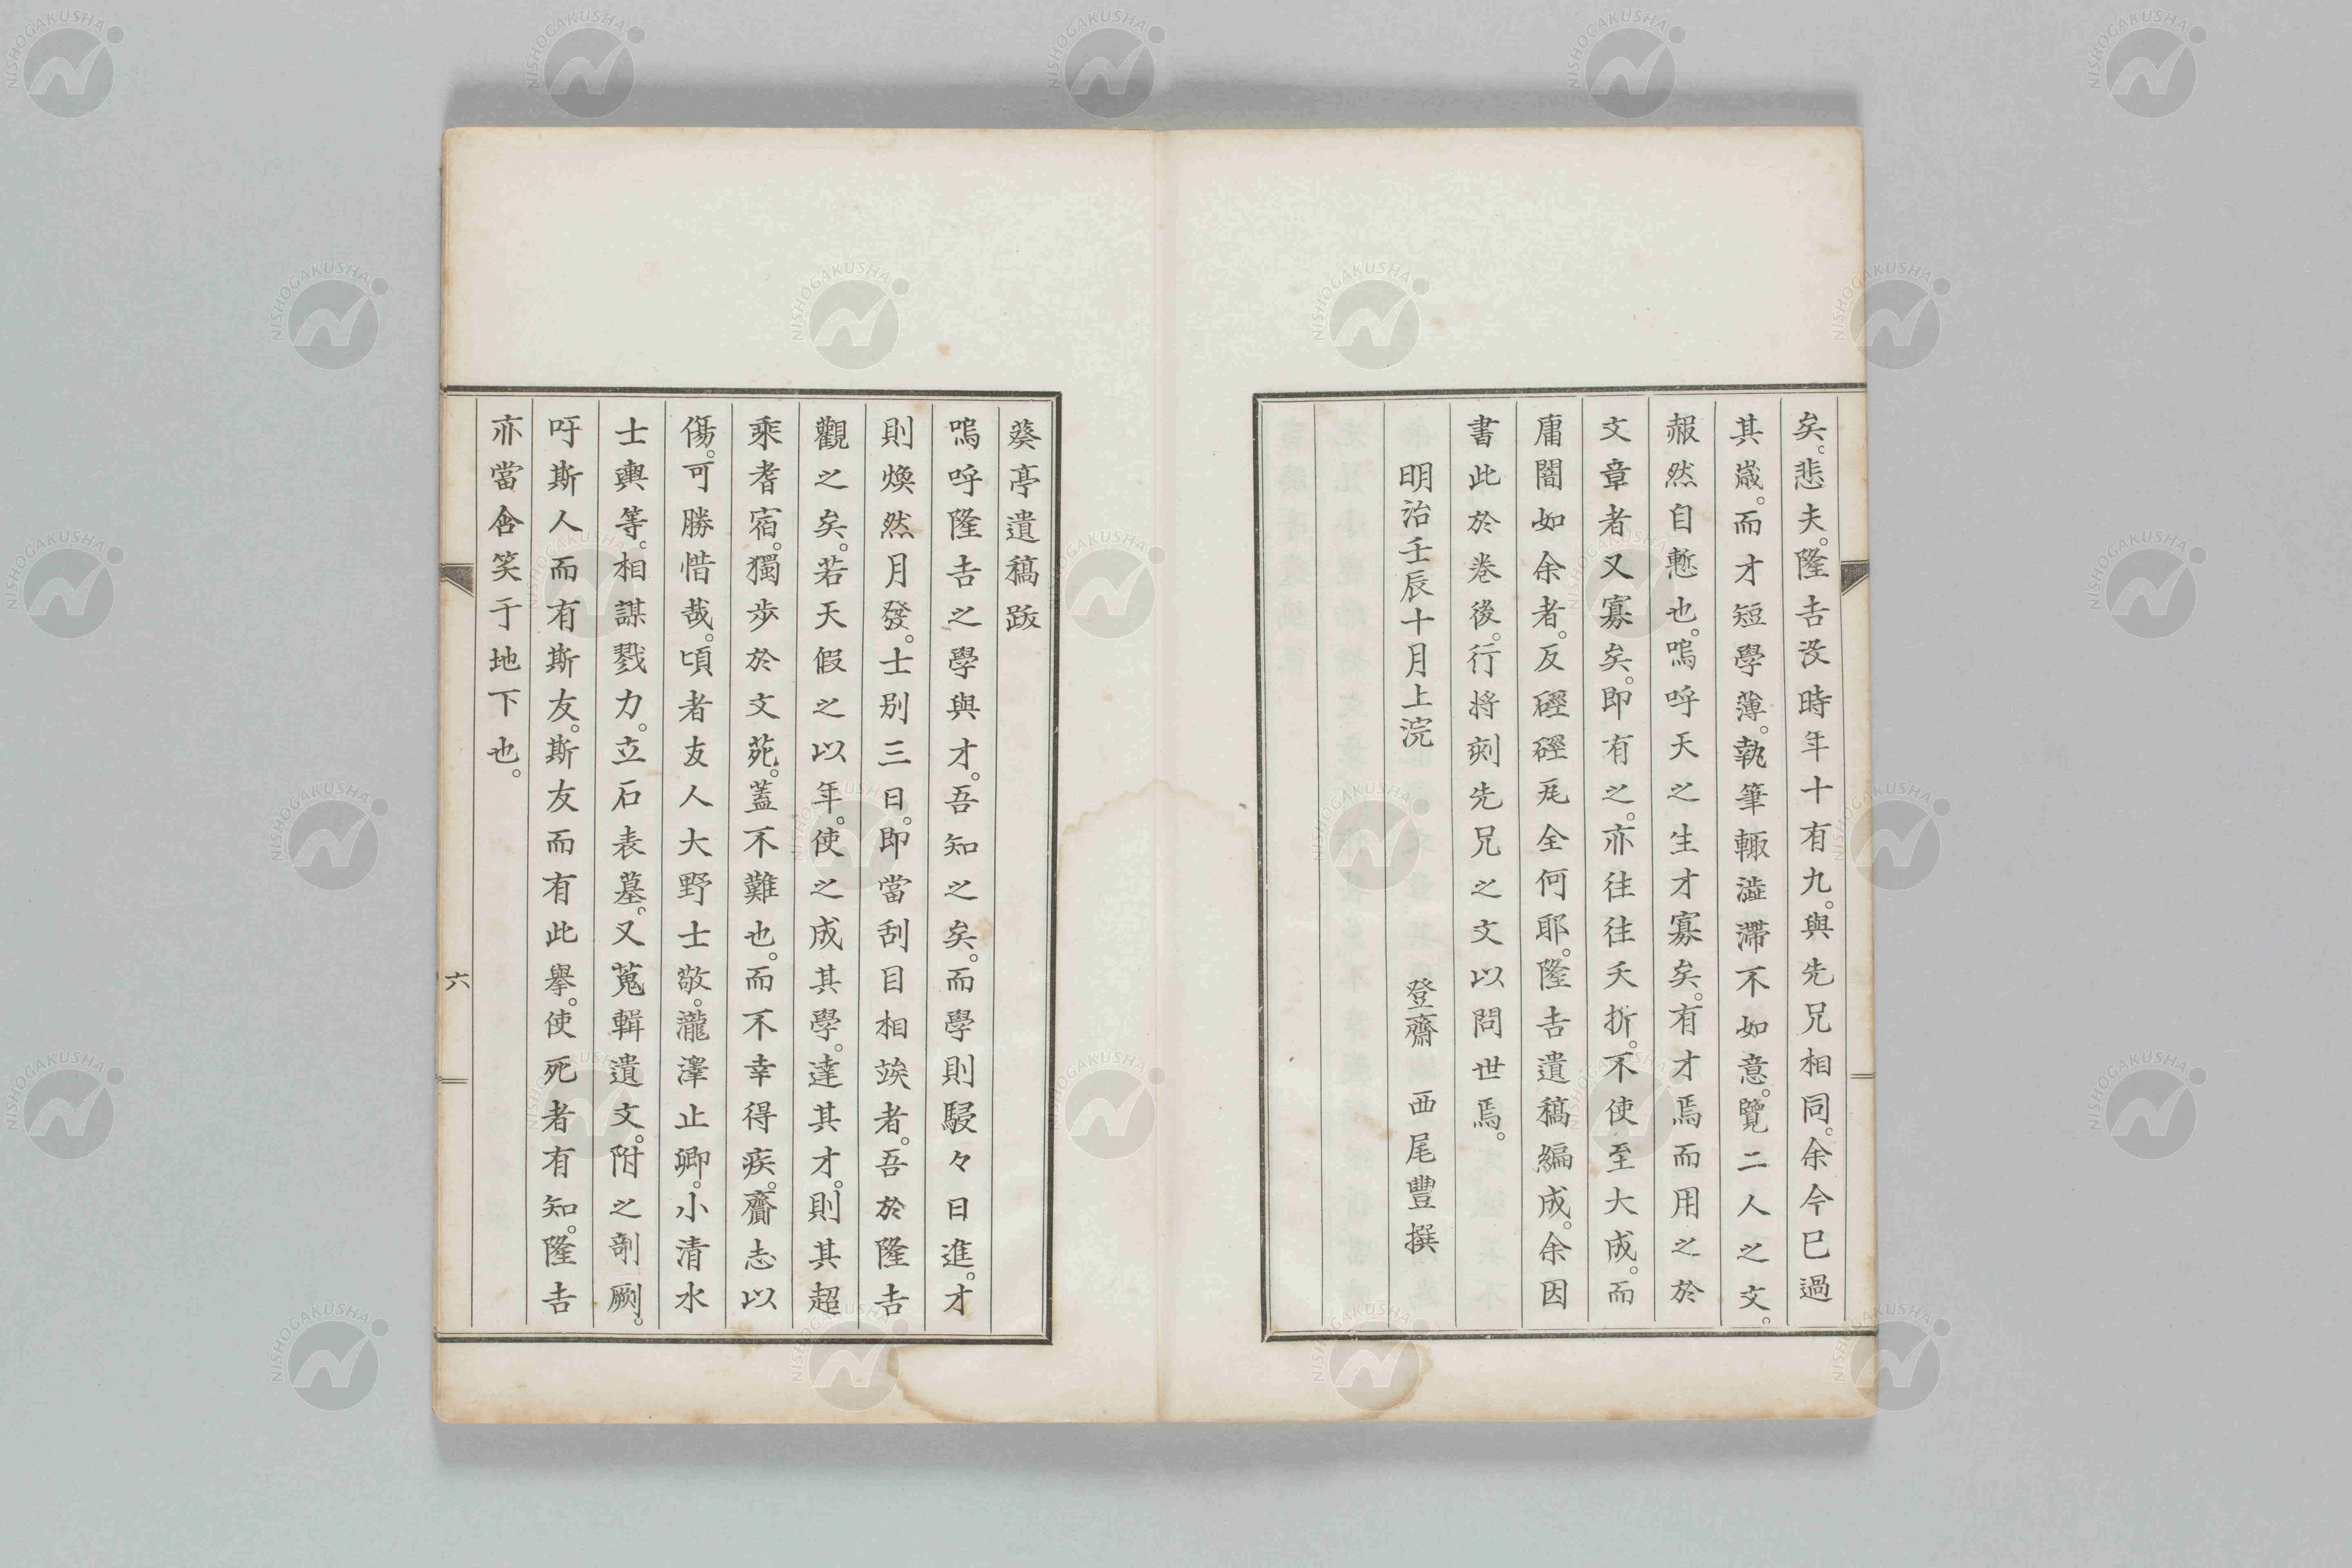 矣。悲夫。隆吉没時年十有九。與先兄相同。余今已過
其歳。而才短學薄。執筆輙澁滯不如意。覽二人之文。
赧然自慙也。嗚呼天之生才寡矣。有才焉而用之於
文章者又寡矣。即有之。亦往往夭折。不使至大成。而
庸闇如余者。反磴磴瓦全何耶。隆吉遺稿編成。余因
書此於卷後。行將刻先兄之文以問世焉。
明治壬辰十月上浣 登齋 西尾豐撰
葵亭遺稿跋
嗚呼隆吉之學與才。吾知之矣。而學則駸々日進。才
則煥然月發。士別三日。即當刮目相竢者。吾於隆吉
觀之矣。若天假之以年。使之成其學。達其才。則其超
乘耆宿。獨歩於文苑。蓋不難也。而不幸得疾。齎志以
傷。可勝惜哉。頃者友人大野士敬。瀧澤止卿。小清水
士輿等。相謀戮力。立石表墓。又蒐輯遺文。附之剞劂。
吁斯人而有斯友。斯友而有此舉。使死者有知。隆吉
亦當含笑于地下也。
六
NISHOGAKUSHA